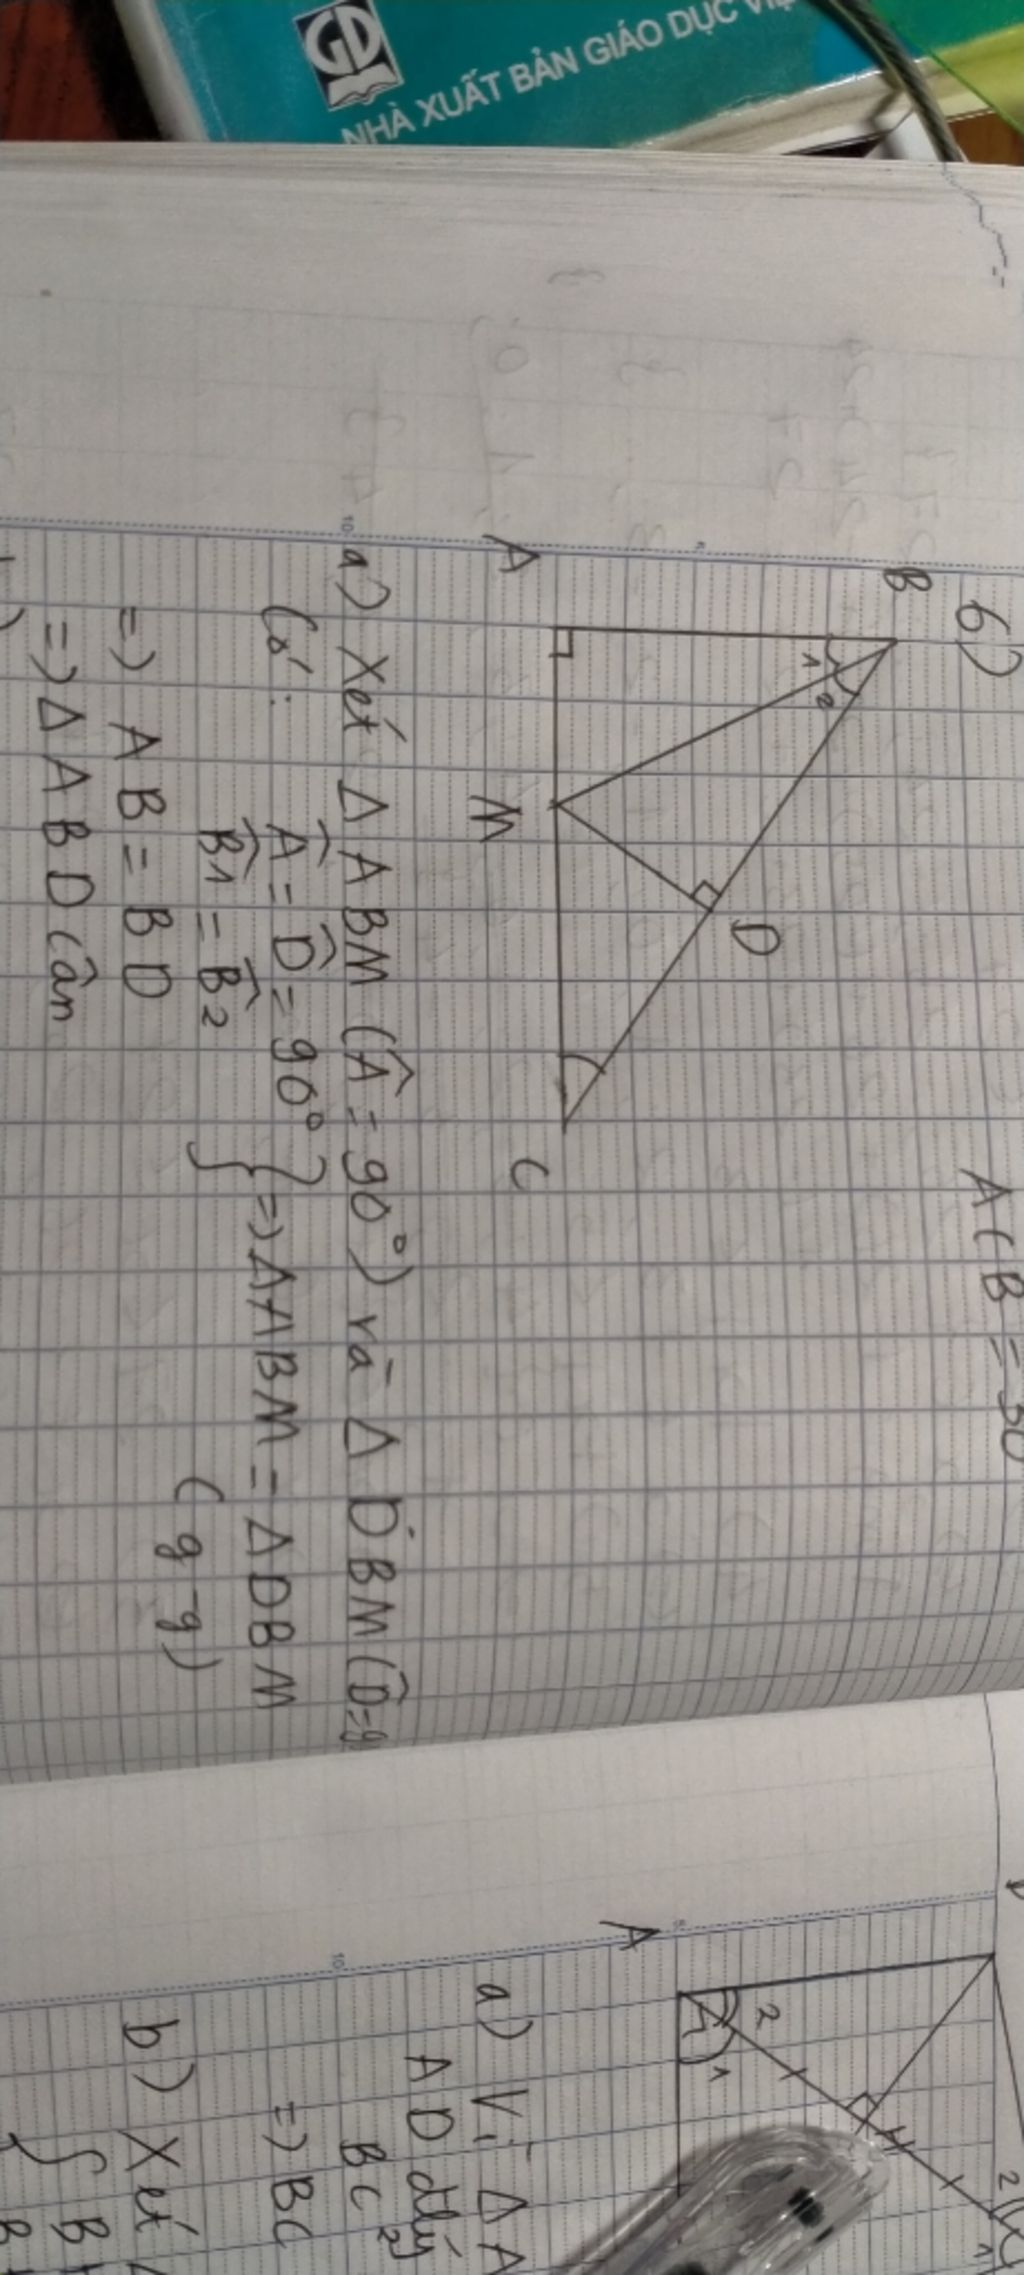 GD
NHÀ XUẤT BẢN GIÁO DỤC
6)
ACB = 30
B
1
2
D
A
M
C
a) Xét Δ ABM (Â = 90°) và Δ DBM (D̂ = 9
Có: Â = D̂ = 90°
B̂1 = B̂2
} => ΔABM = ΔDBM
(g-g)
=> AB = BD
=> Δ ABD cân
A
2
1
H
2
1
a) Vì Δ A
AD
BC
=> BC
b) Xét
{ B